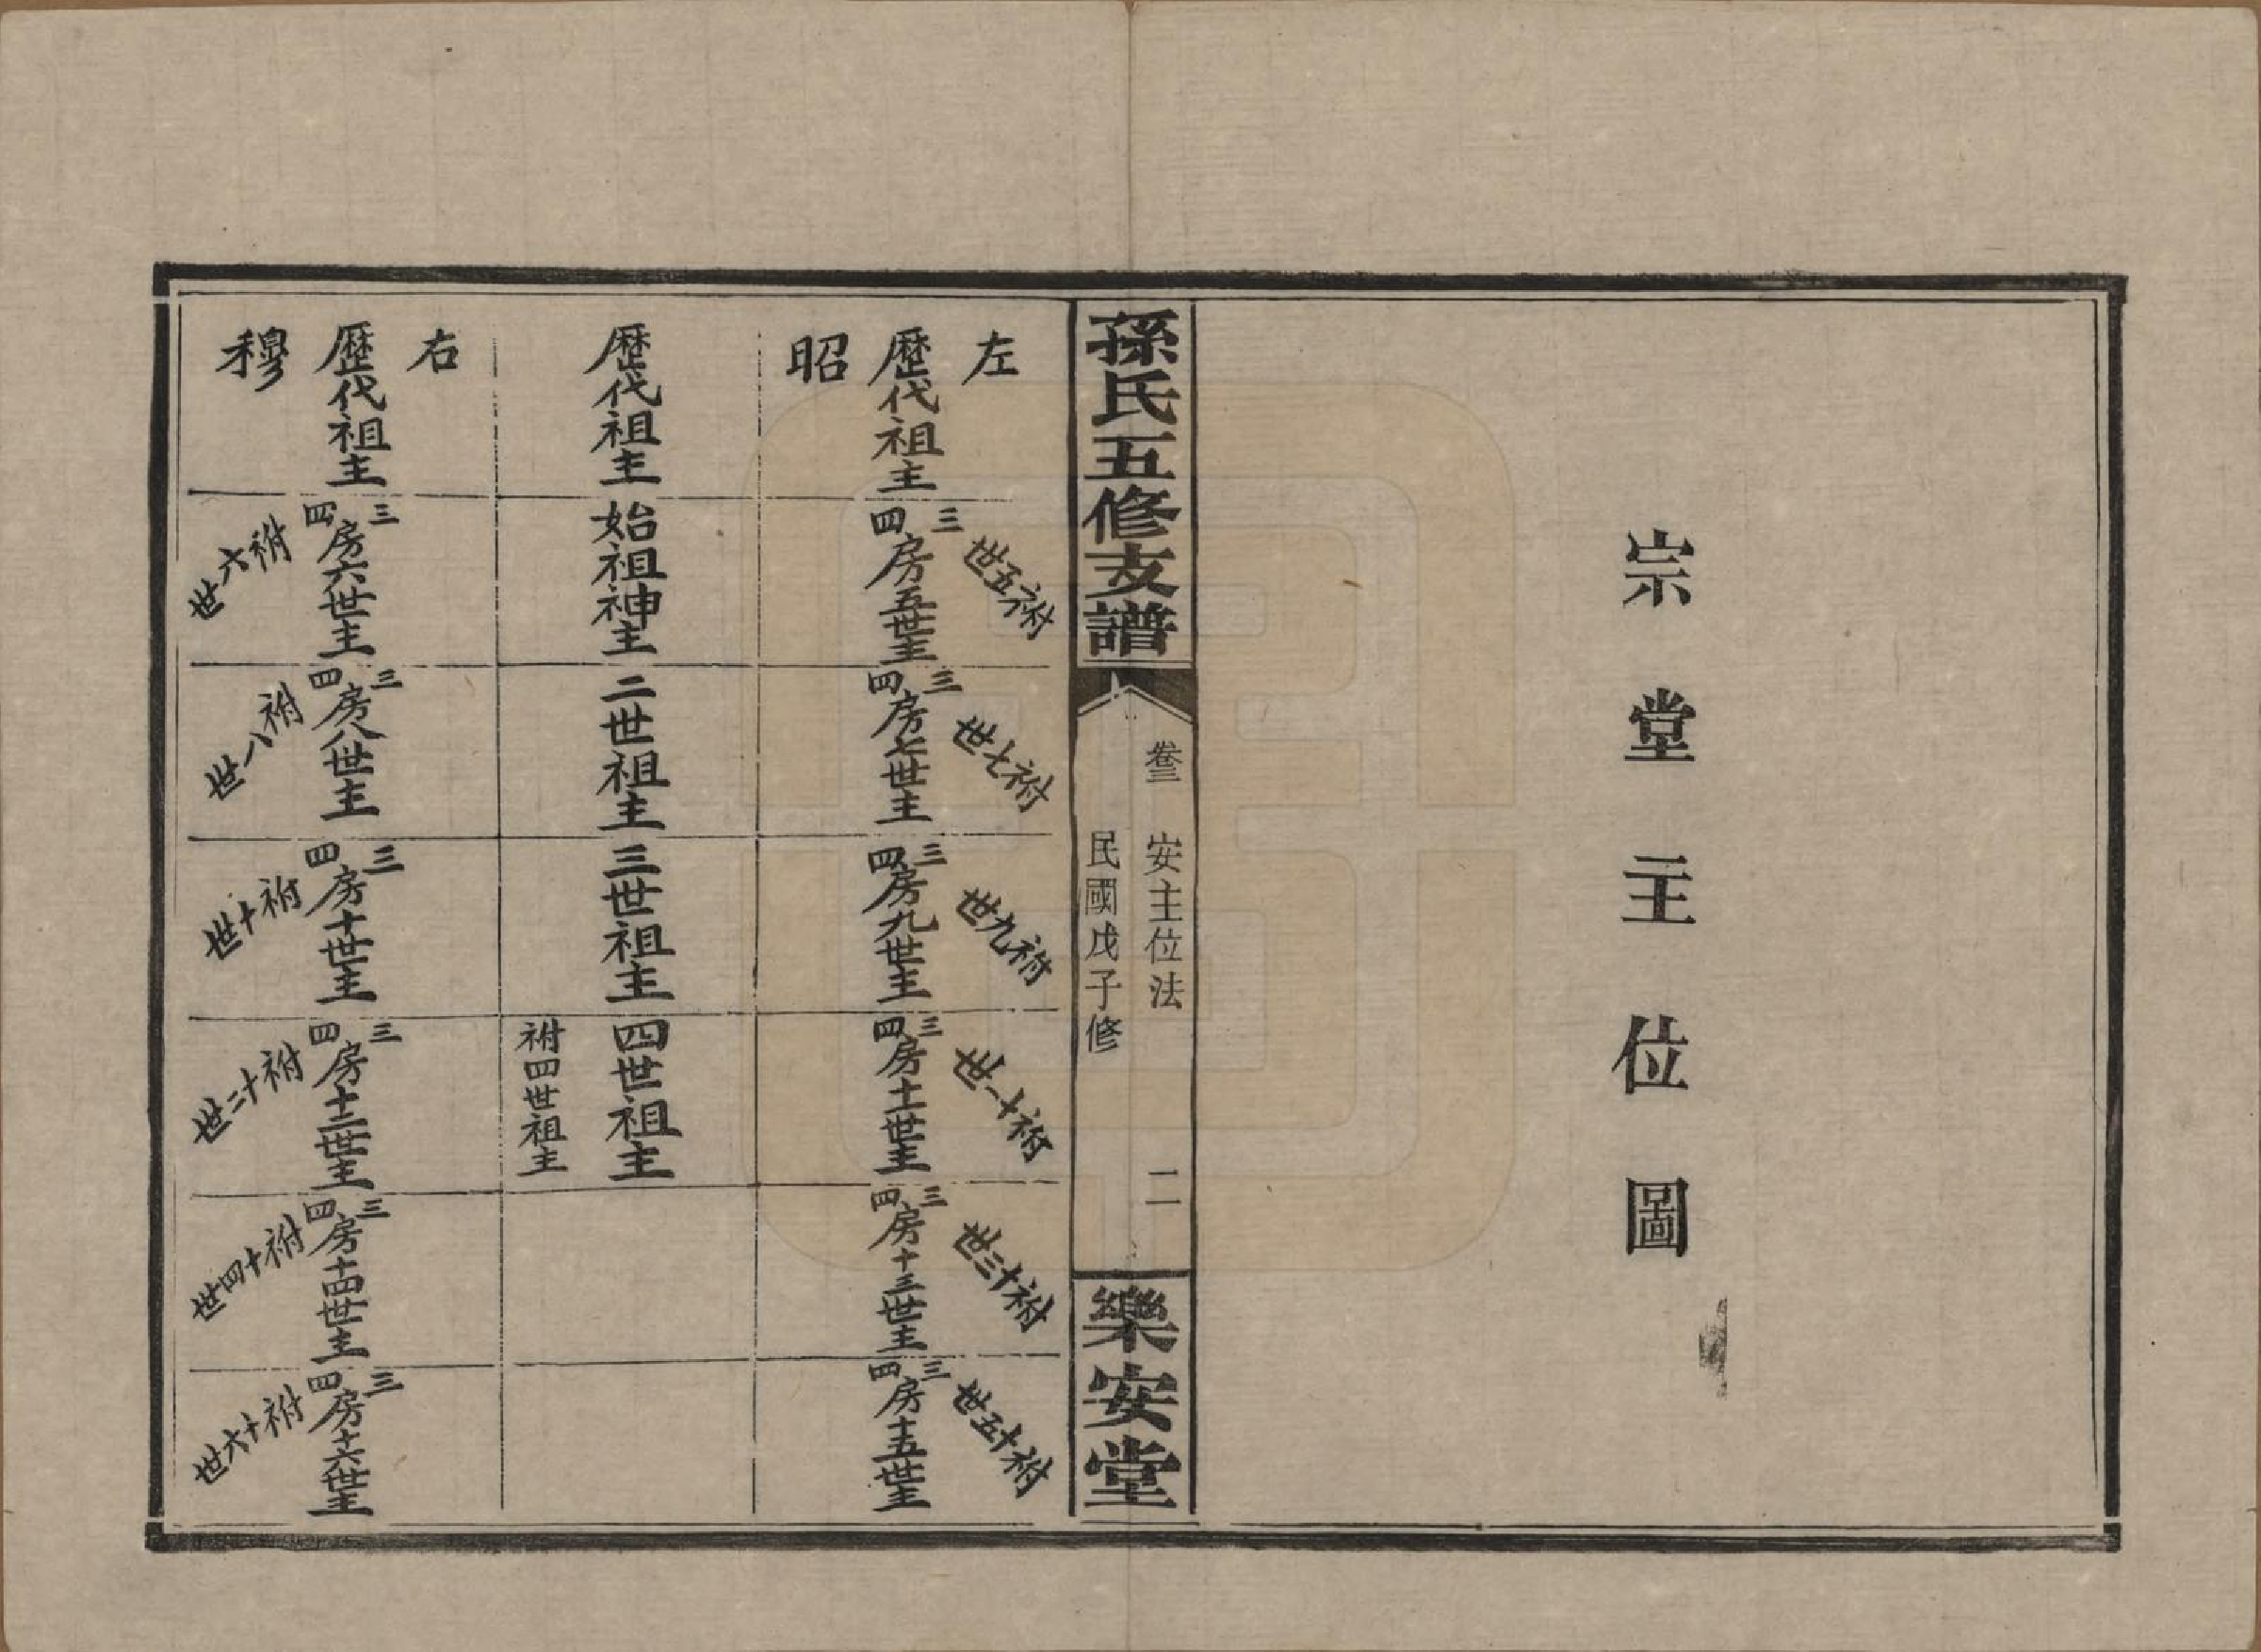 宗堂主位圖
孫氏五修支譜
卷三 安主位法 二
民國戊子修
樂安堂
左
歷代祖主
昭
三四房五世主
祔六五世
三四房七世主
祔七世
三四房九世主
祔九世
三四房十一世主
祔十一世
三四房十三世主
祔十三世
三四房十五世主
祔十五世
歷代祖主
始祖神主
二世祖主
三世祖主
四世祖主
祔四世祖主
右
歷代祖主
穆
三四房六世主
祔六世
三四房八世主
祔八世
三四房十世主
祔十世
三四房十二世主
祔十二世
三四房十四世主
祔十四世
三四房十六世主
祔十六世